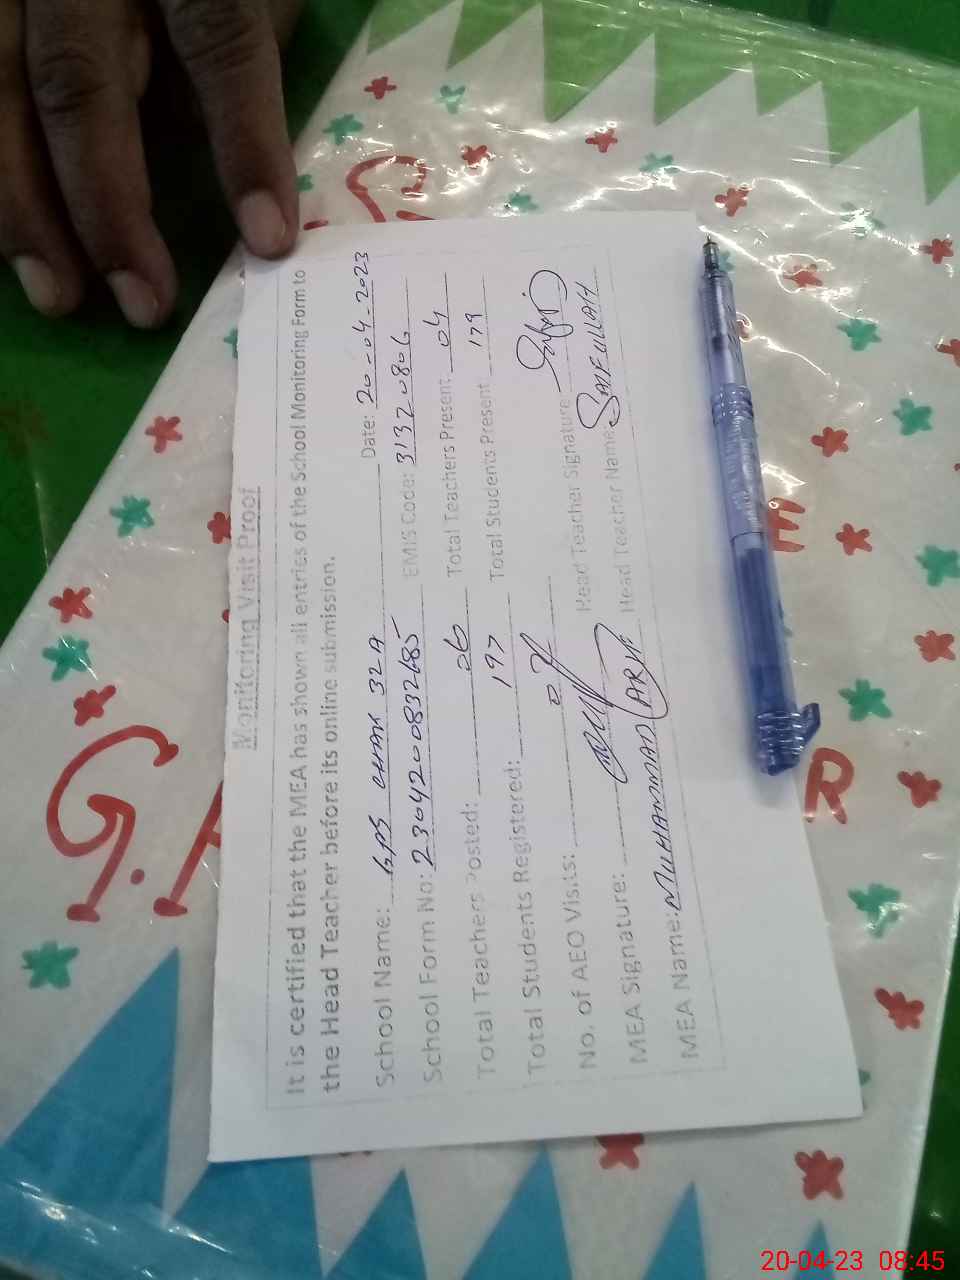 Monitoring Visit Proof
It is certified that the MEA has shown all entries of the School Monitoring Form to
the Head Teacher before its online submission.
School Name: GPS CHAK 32A Date: 20-04-2023
School Form No: EMIS Code: 31320806
Total Teachers Posted: 06 Total Teachers Present 04
Total Students Registered: 197 Total Students Present 179
No. of AEO Visits:
MEA Signature: Head Teacher Signature
MEA Name: MUHAMMAD ARIF Head Teacher Name: SAIFULLAH
20-04-23 08:45